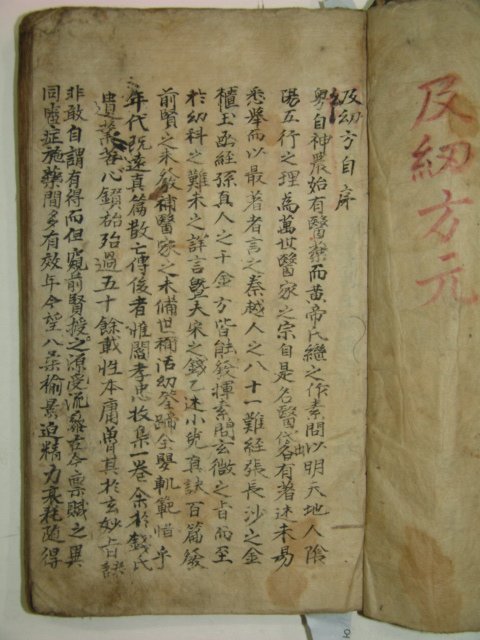 及幼方元
及幼方自序
粤自神農始有醫藥而黃帝氏繼之作素問以明天地人陰
陽五行之理為萬世醫家之宗自是名醫代各有著述未易
悉擧而以最著者言之秦越人之八十一難經張長沙之金
樻玉函經孫真人之千金方皆能發揮素問玄微之旨而至
於幼科之難未之詳言曁夫宋之錢乙述小兒真訣百篇發
前賢之未發補醫家之未備世稱活幼筌蹄全嬰軌範惜乎
年代旣遠真篇散亡傳後者惟閻孝忠收集一卷余於錢氏
遺藁苦心鑽硏殆過五十餘載性本庸魯其於玄妙旨訣
非敢自謂有得而但窺前賢授之源受流參古今稟賦之異
同隨症施藥間多有效年今望八桑楡景迫精力衰耗隨得